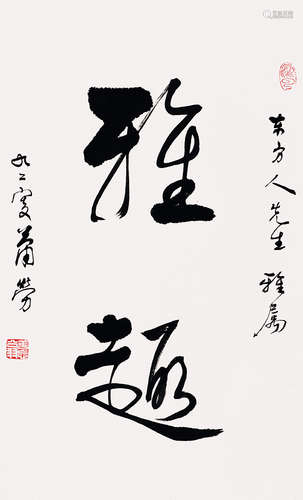 东方人先生雅属
雅趣
九二叟萧劳